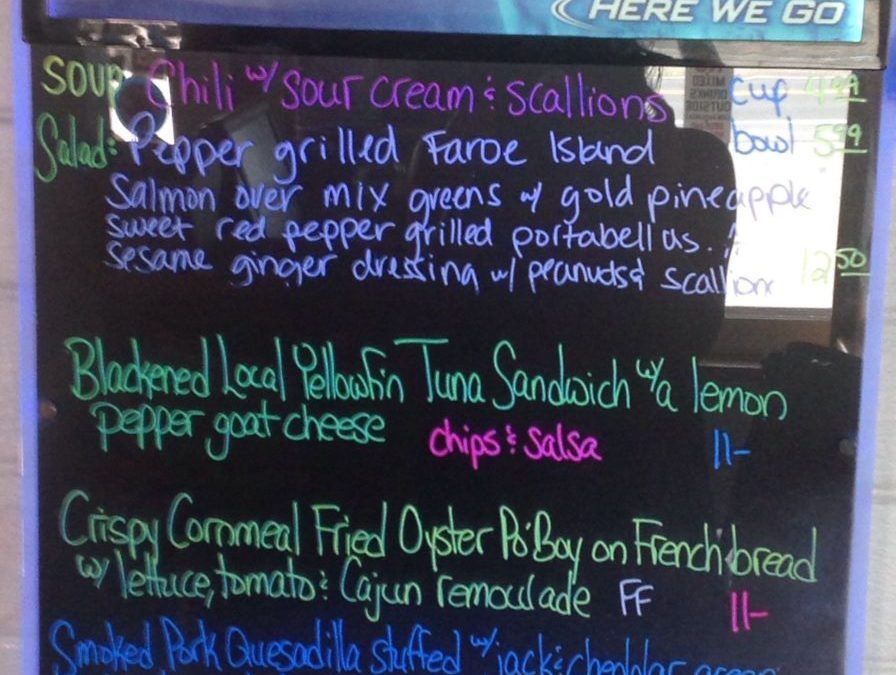 HERE WE GO
Soup Chili w/ sour cream & scallions cup 4.99
Salad: Pepper grilled Faroe Island bowl 5.99
Salmon over mix greens w/ gold pineapple
sweet red pepper grilled portabellas. &
sesame ginger dressing w/ peanuds & scallions 12.50
Blackened Local Yellowfin Tuna Sandwich w/ a lemon
pepper goat cheese chips & salsa 11-
Crispy Cornmeal Fried Oyster Po'Boy on French bread
w/ lettuce, tomato & Cajun remoulade FF 11-
Smoked Pork Quesadilla stuffed w/ jack & cheddar green